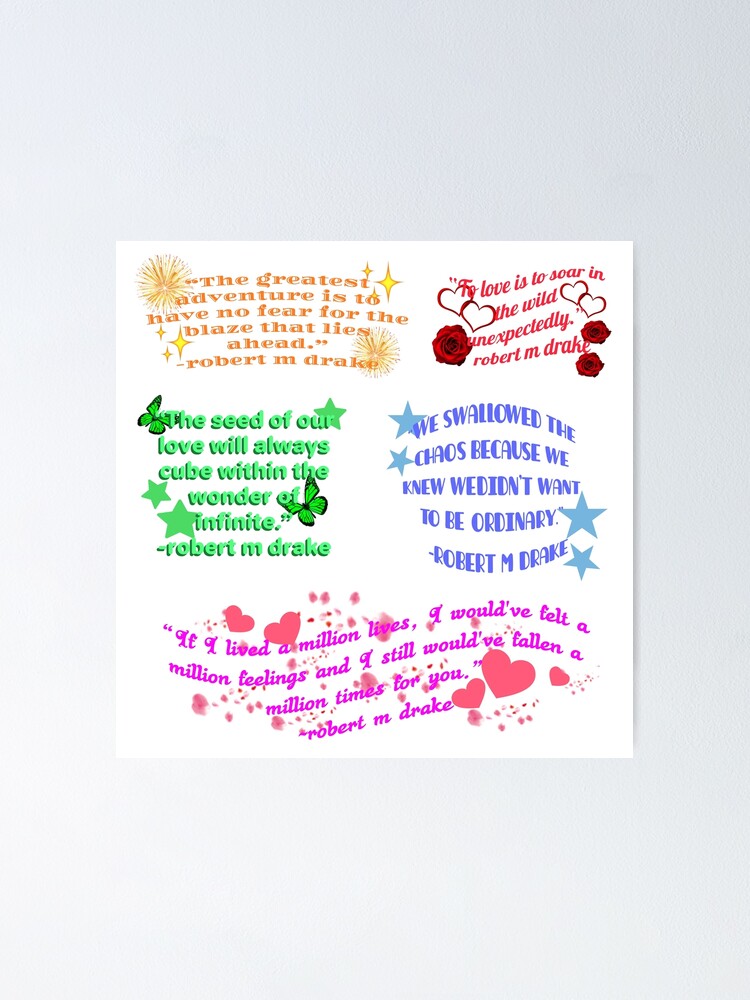 “The greatest
adventure is to
have no fear for the
blaze that lies
ahead.”
-robert m drake
"To love is to soar in
the wild
unexpectedly.”
robert m drake
“The seed of our
love will always
cube within the
wonder of
infinite.”
-robert m drake
“WE SWALLOWED THE
CHAOS BECAUSE WE
KNEW WEDIDN'T WANT
TO BE ORDINARY.”
-ROBERT M DRAKE
“If I lived a million lives, I would've felt a
million feelings and I still would've fallen a
million times for you.”
-robert m drake